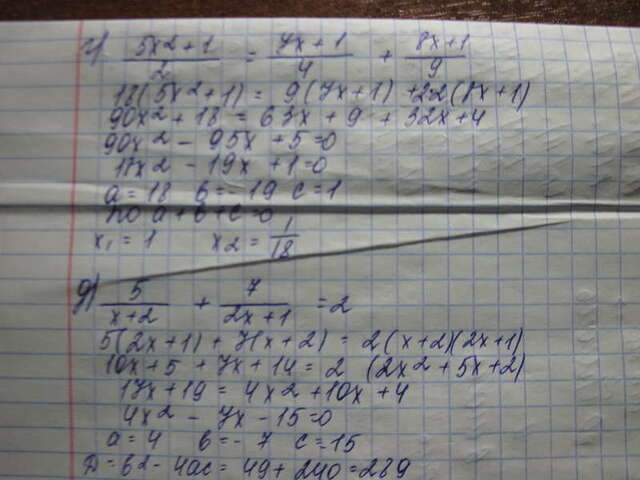 г) (5x2+1)/2 = (7x+1)/4 + (8x+1)/9
18(5x2+1) = 9(7x+1) +22(8x+1)
90x2+18 = 63x+9 + 32x+4
90x2 - 95x +5=0
18x2 - 19x +1=0
a=18 b=-19 c=1
по a+b+c=0
x1=1 x2=1/18
д) 5/(x+2) + 7/(2x+1) =2
5(2x+1)+7(x+2)=2(x+2)(2x+1)
10x+5+7x+14=2 (2x2+5x+2)
17x+19=4x2+10x+4
4x2-7x-15=0
a=4 b=-7 c=15
D=b2-4ac=49+240=289